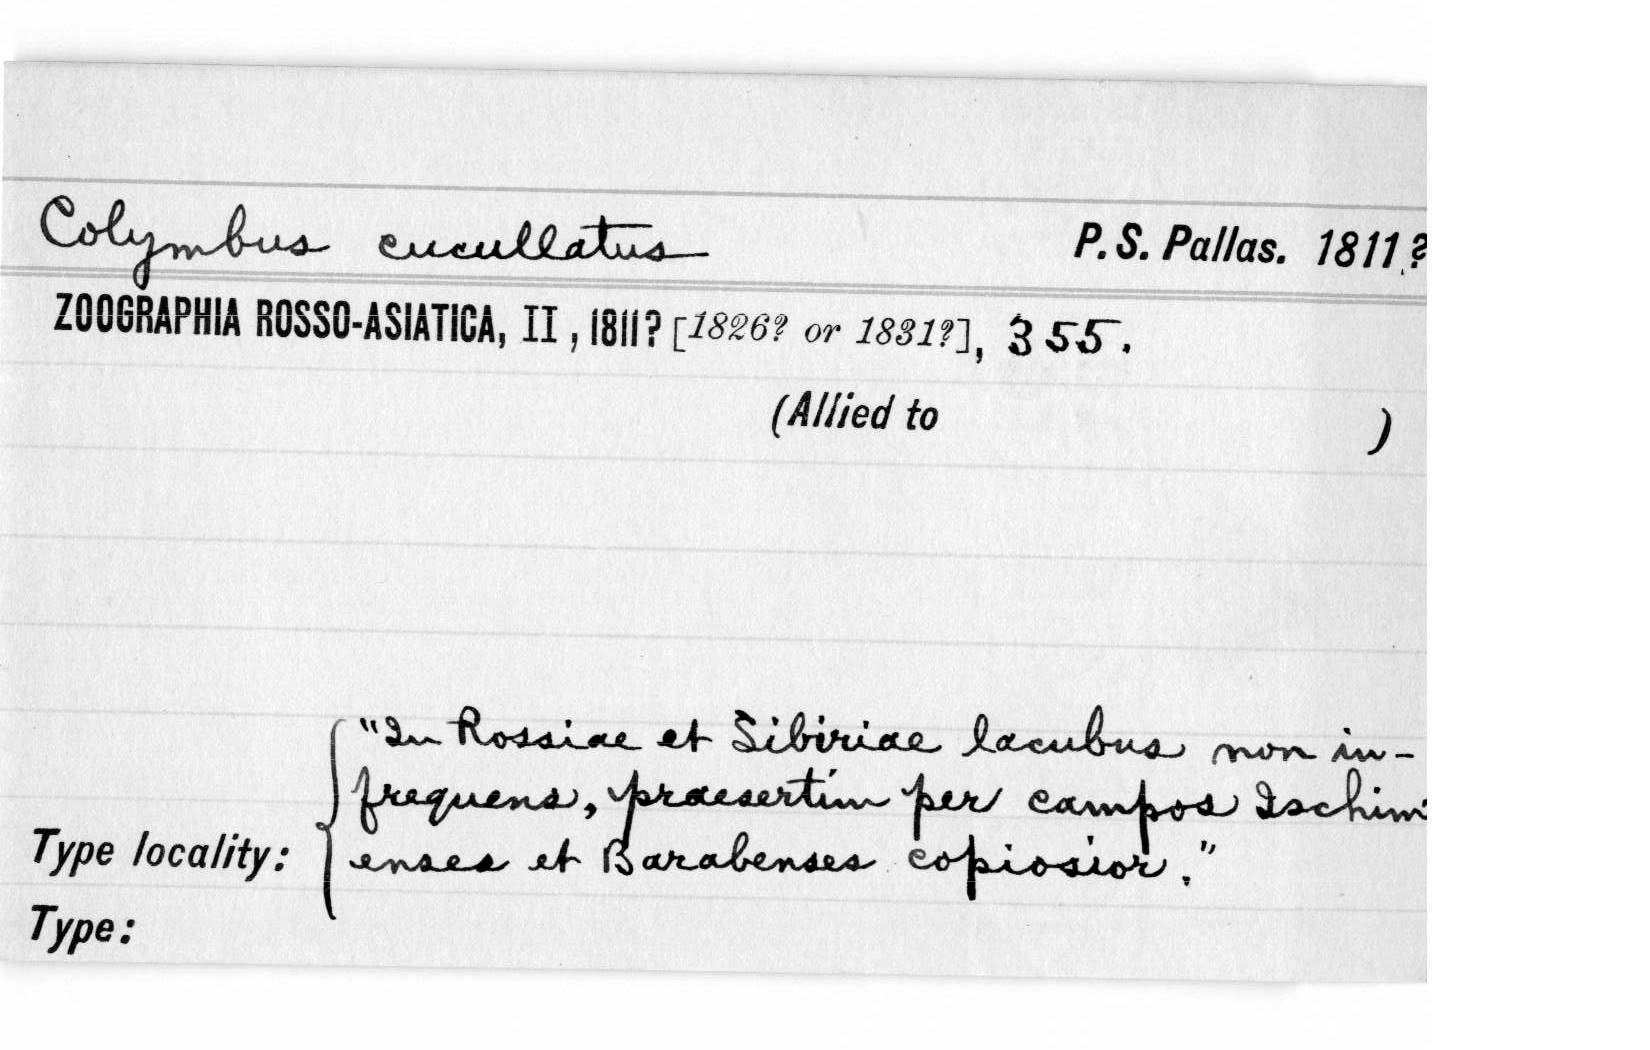 Colymbus cucullatus P. S. Pallas. 1811?
ZOOGRAPHIA ROSSO-ASIATICA, II, 1811? [1826? or 1831?], 355.
(Allied to )
"In Rossiae et Sibiriae lacubus non in-
frequens, praesertim per campos Ischim-
Type locality: enses et Barabenses copiosior."
Type: